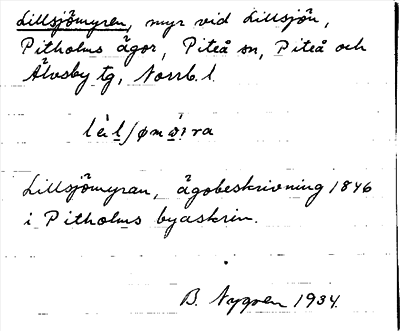 Lillsjömyren, myr vid Lillsjön,
Pitholms ägor, Piteå sn, Piteå och
Älvsby tg, Norrb. l.
Lillsjömyran, ägobeskrivning 1846
i Pitholms byaskrin.
B. Nygren 1934.